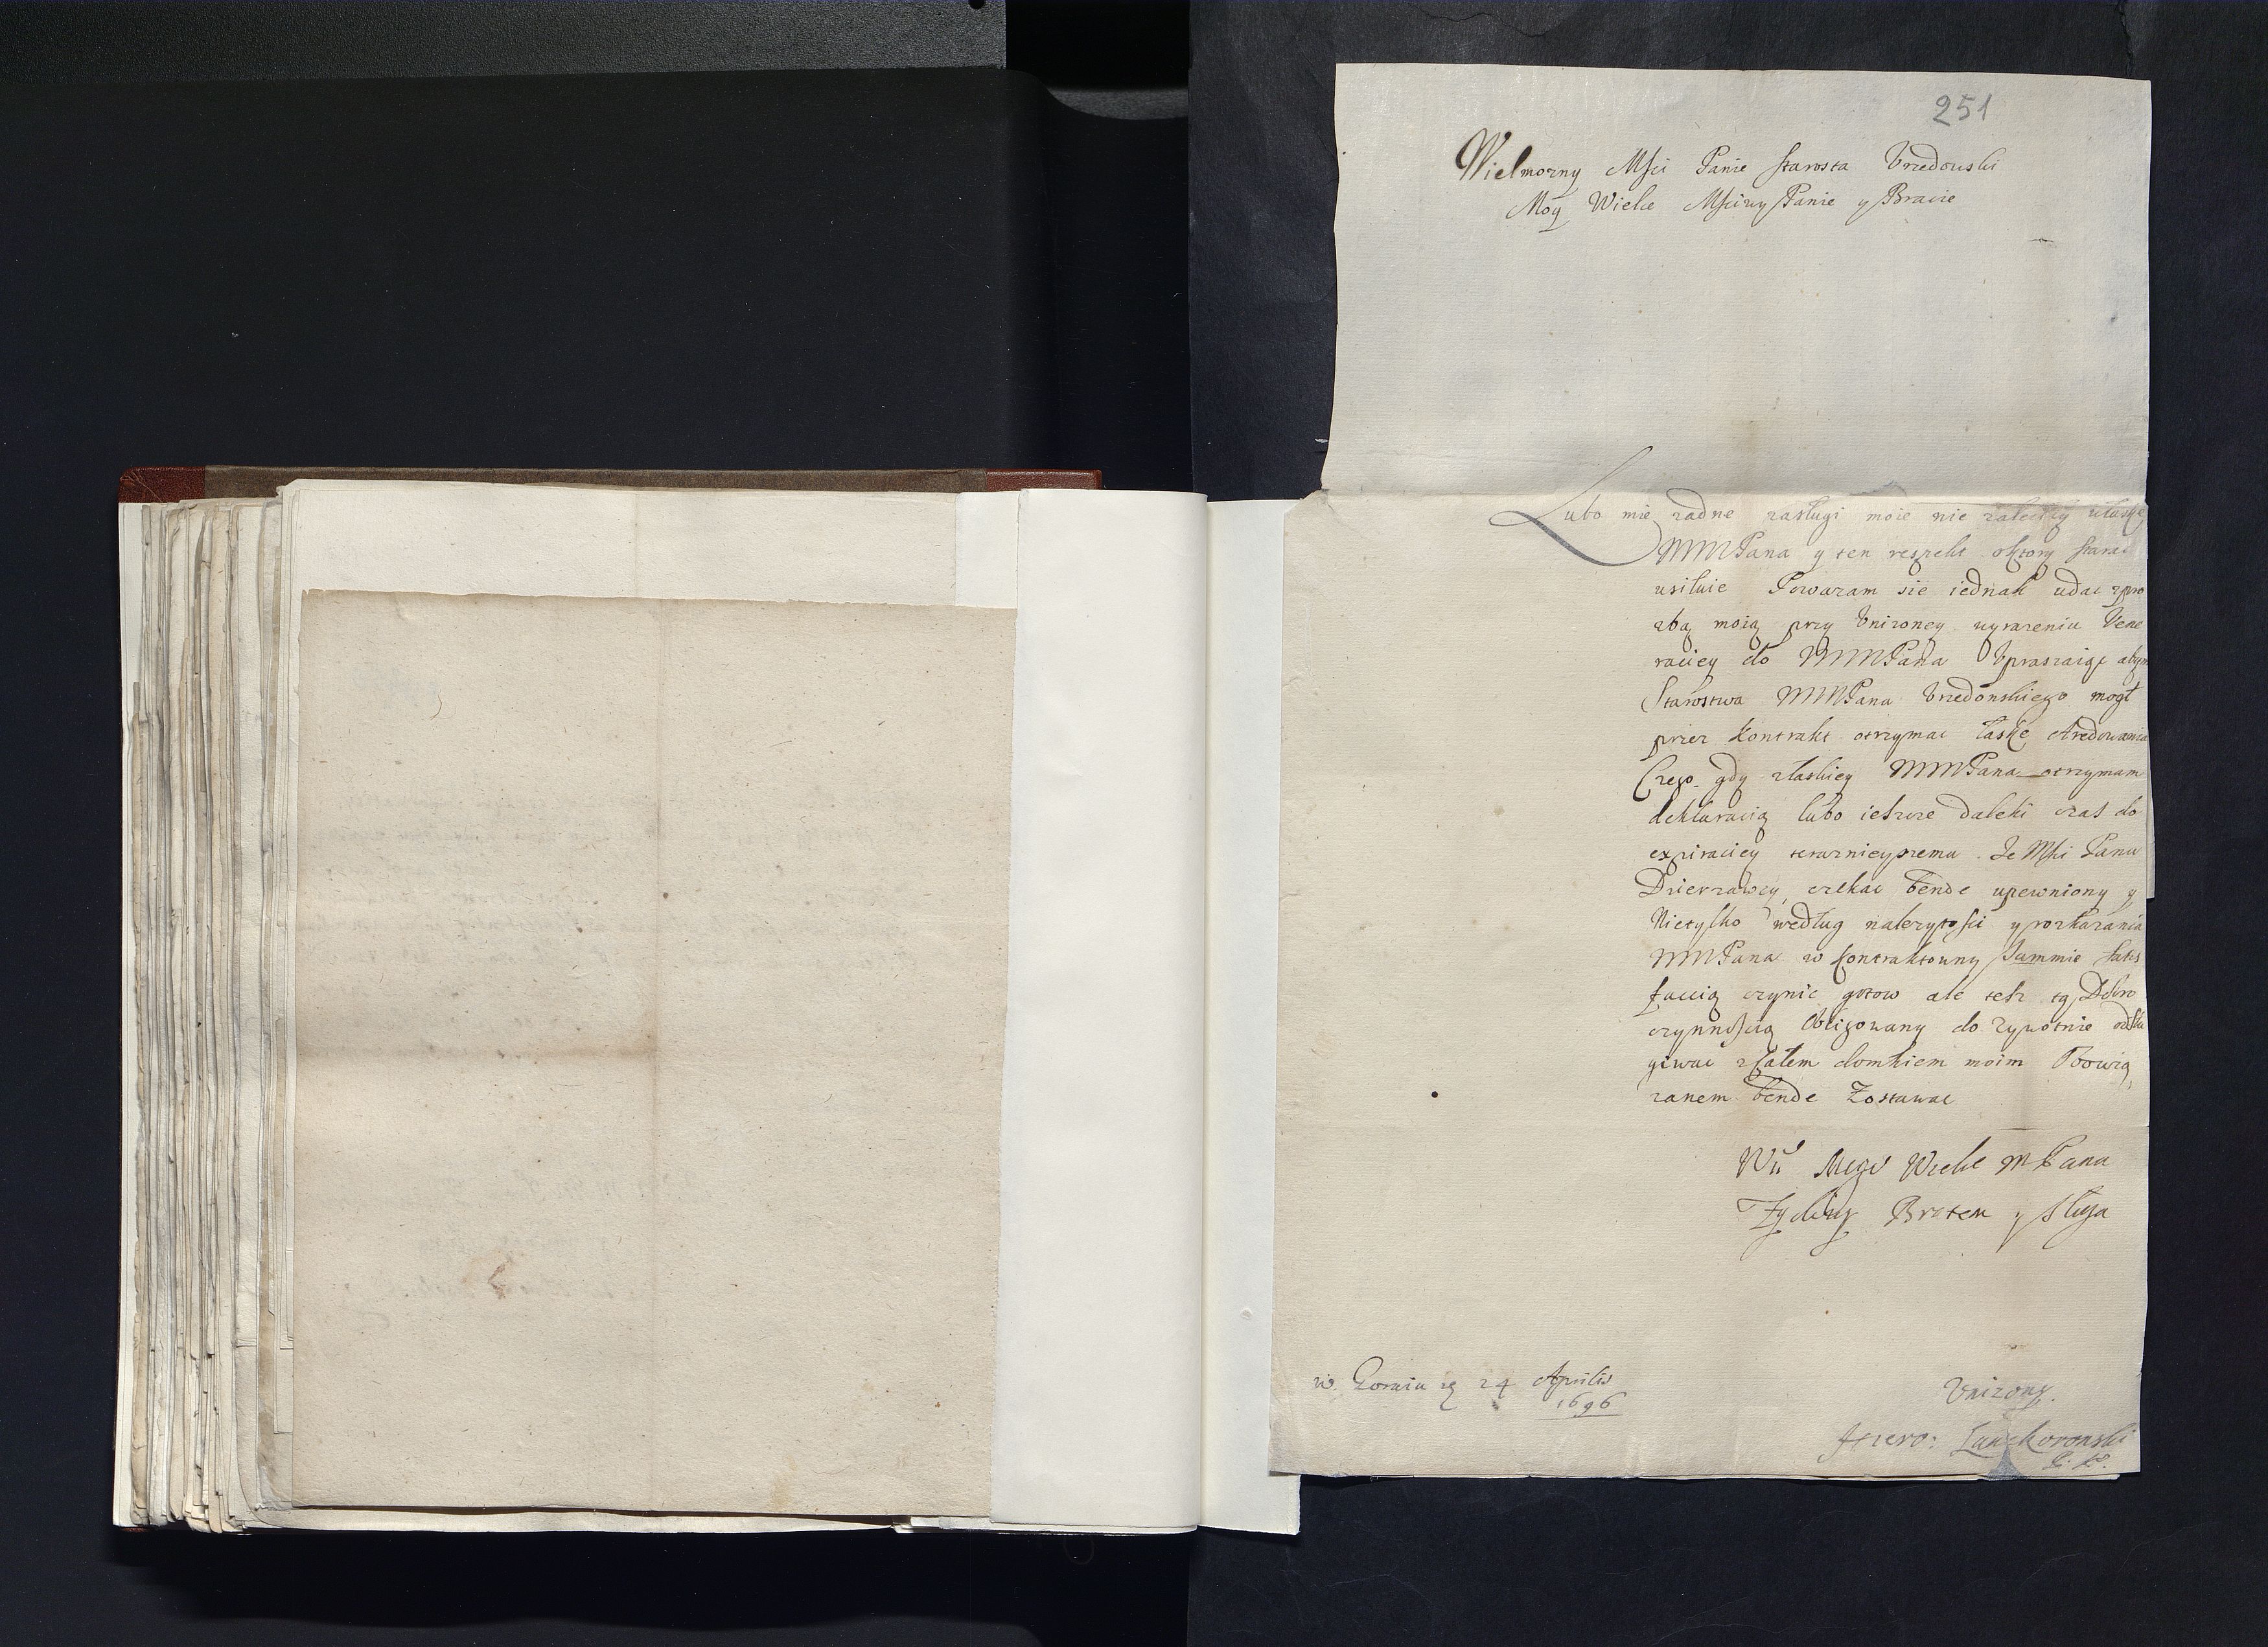 251
Wielmozny Msci Panie Starosta Vrzedowski
Moy Wielce Msciwy Panie y Bracie
Lubo mie zadne zaslugi moie nie zalecily właskę
MMMPana y ten respekt oktory starac
usiluie Powazam sie iednak udac zpro
zbą moią przy Vnizoney wyrazeniu Vene
raciey do MMMPana Vpraszaiąc abym
Starostwa MMMPana Vrzedowskiego mogł
przez kontrakt otrzymac łaskę Aredowania
Czego gdy złaskiey MMMPana otrzymam
deklaracią lubo ieszcze daleki czas do
expiraciey teraznieyszemu Je Msci Panu
Dzierzawcy, czekac bende upewniony y
Nietylko według nalezytosci y rozkazania
MMMPana w kontraktowny summie satis
faccią czynic gotow ale tesz tą Dobro
czynnoscią Obligowany do zywotnie odslu
giwac zcałem domkiem moim Powią
zanem bende Zostawac
Wii Mego Wielce MPana
Zyczliwy Bratem y Sługa
24 Aprilis
1696
Vnizony
Hiero: Lanckoronski
P. P.